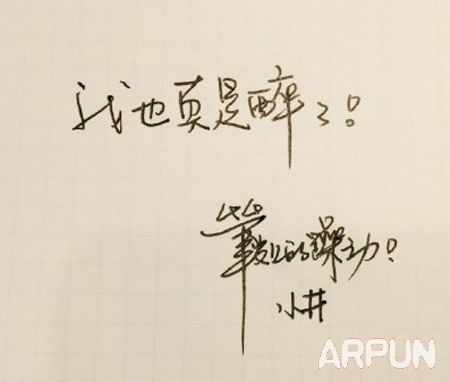 我也真是醉了!
笔尖上的躁动!
小井
ARPUN